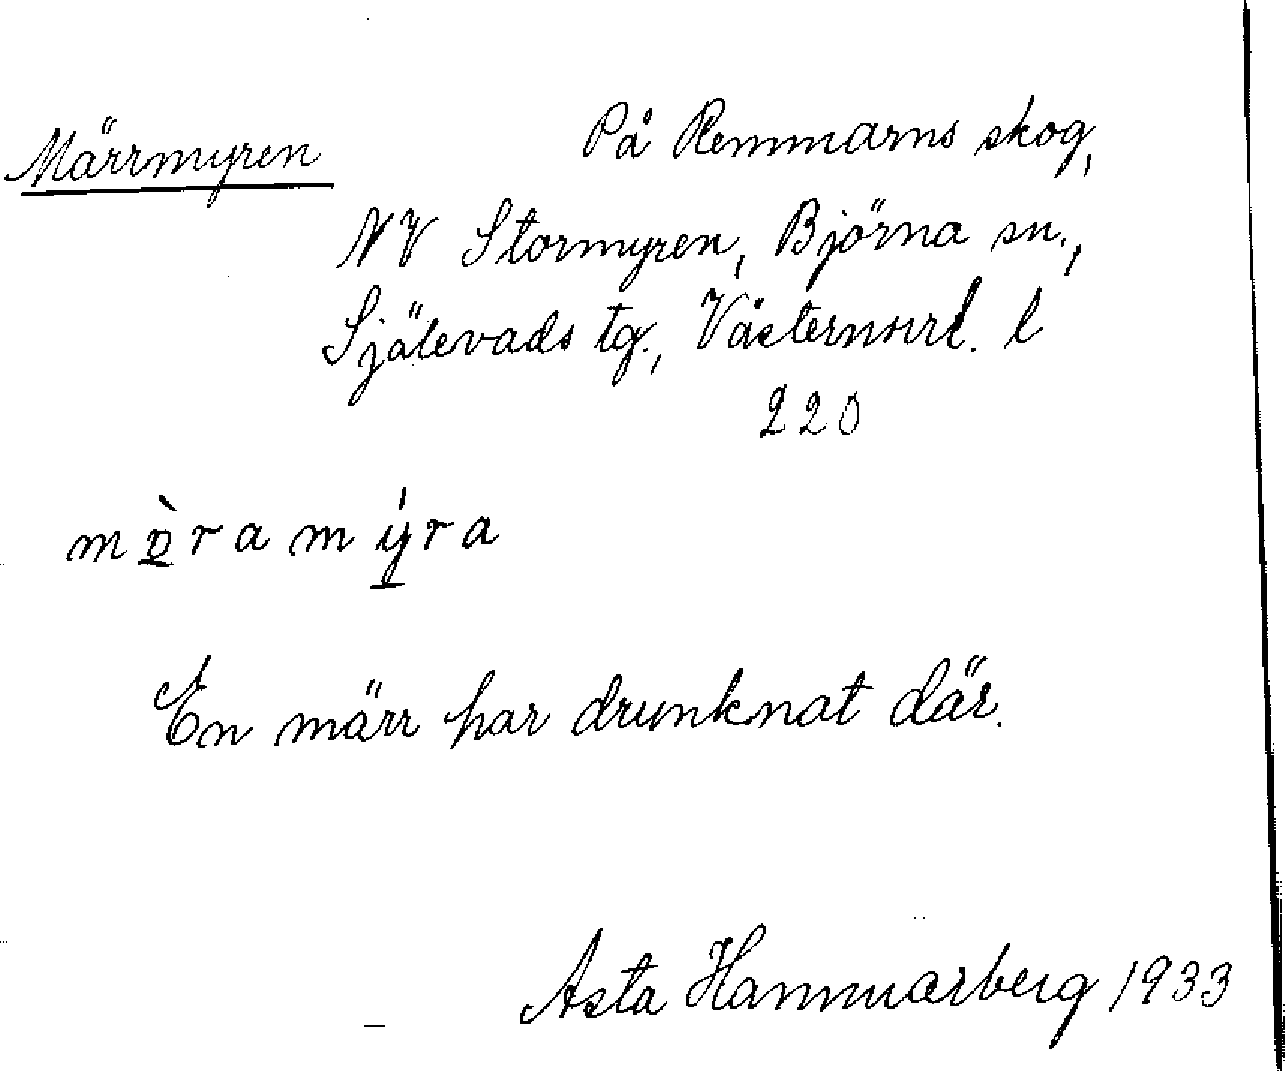 Märrmyren På Remmarns skog,
NV Stormyren, Björna sn.,
Själevads tg., Västernorrl. l
220
En märr har drunknat där.
Asta Hammarberg 1933